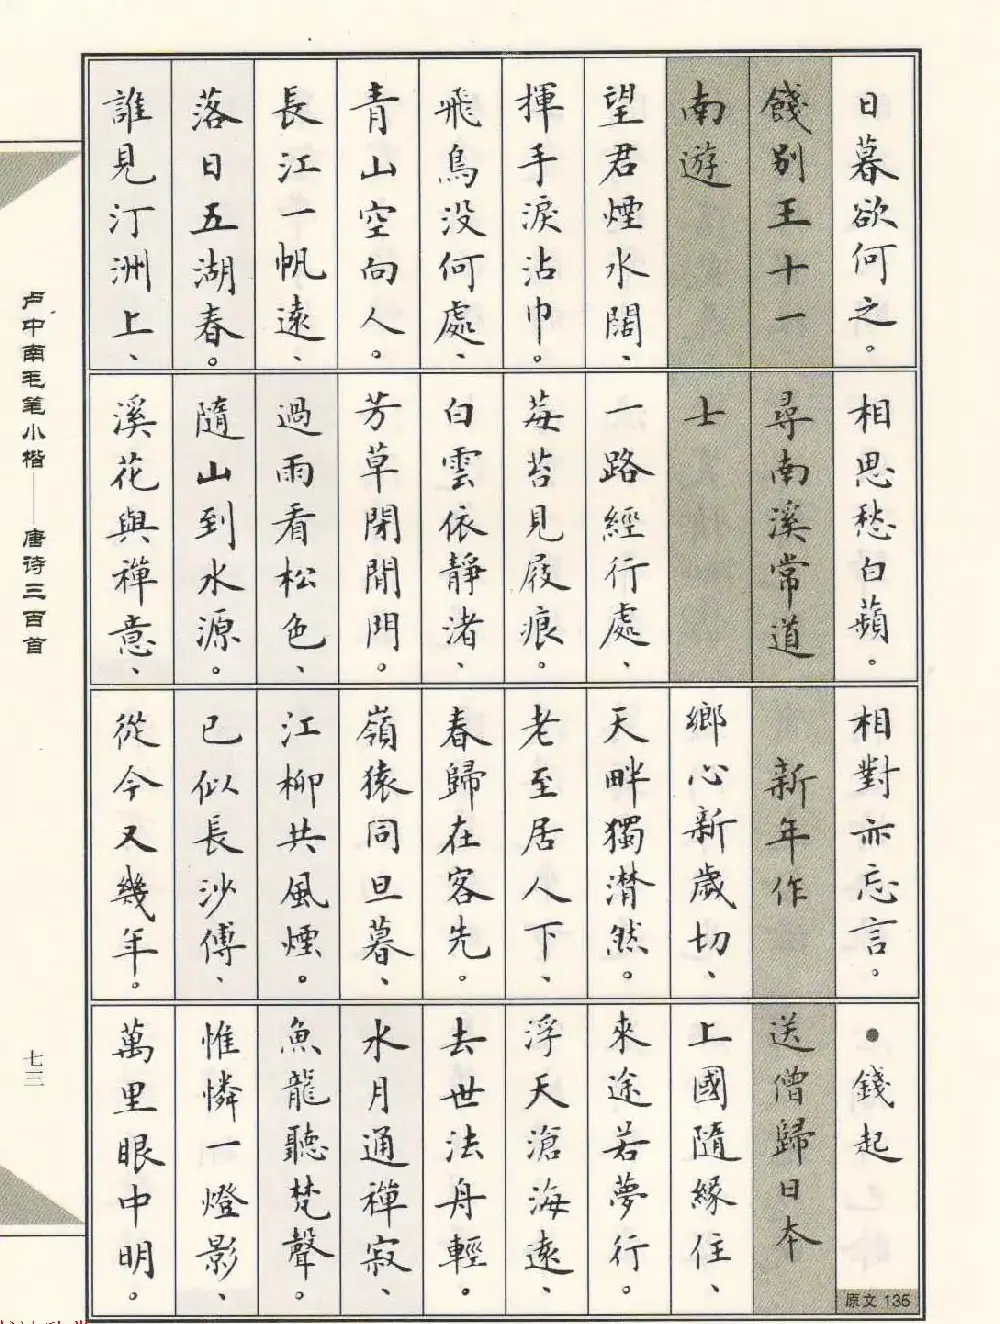 日暮欲何之。
餞別王十一
南遊
望君煙水闊、
揮手淚沾巾。
飛鳥没何處、
青山空向人。
長江一帆遠、
落日五湖春。
誰見汀洲上、
相思愁白蘋。
尋南溪常道
士
一路經行處、
莓苔見屐痕。
白雲依靜渚、
芳草閉閒門。
過雨看松色、
隨山到水源。
溪花與禪意、
相對亦忘言。
新年作
鄉心新歲切、
天畔獨潸然。
老至居人下、
春歸在客先。
嶺猿同旦暮、
江柳共風煙。
已似長沙傅、
從今又幾年。
●錢起
送僧歸日本
上國隨緣住、
來途若夢行。
浮天滄海遠、
去世法舟輕。
水月通禪寂、
魚龍聽梵聲。
惟憐一燈影、
萬里眼中明。
原文 135
卢中南毛笔小楷——唐诗三百首
七三